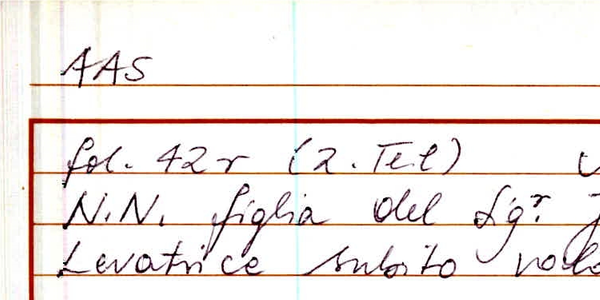 AAS
fol. 42r (2. Teil)
N.N. figlia del Sigr.
Levatrice subito